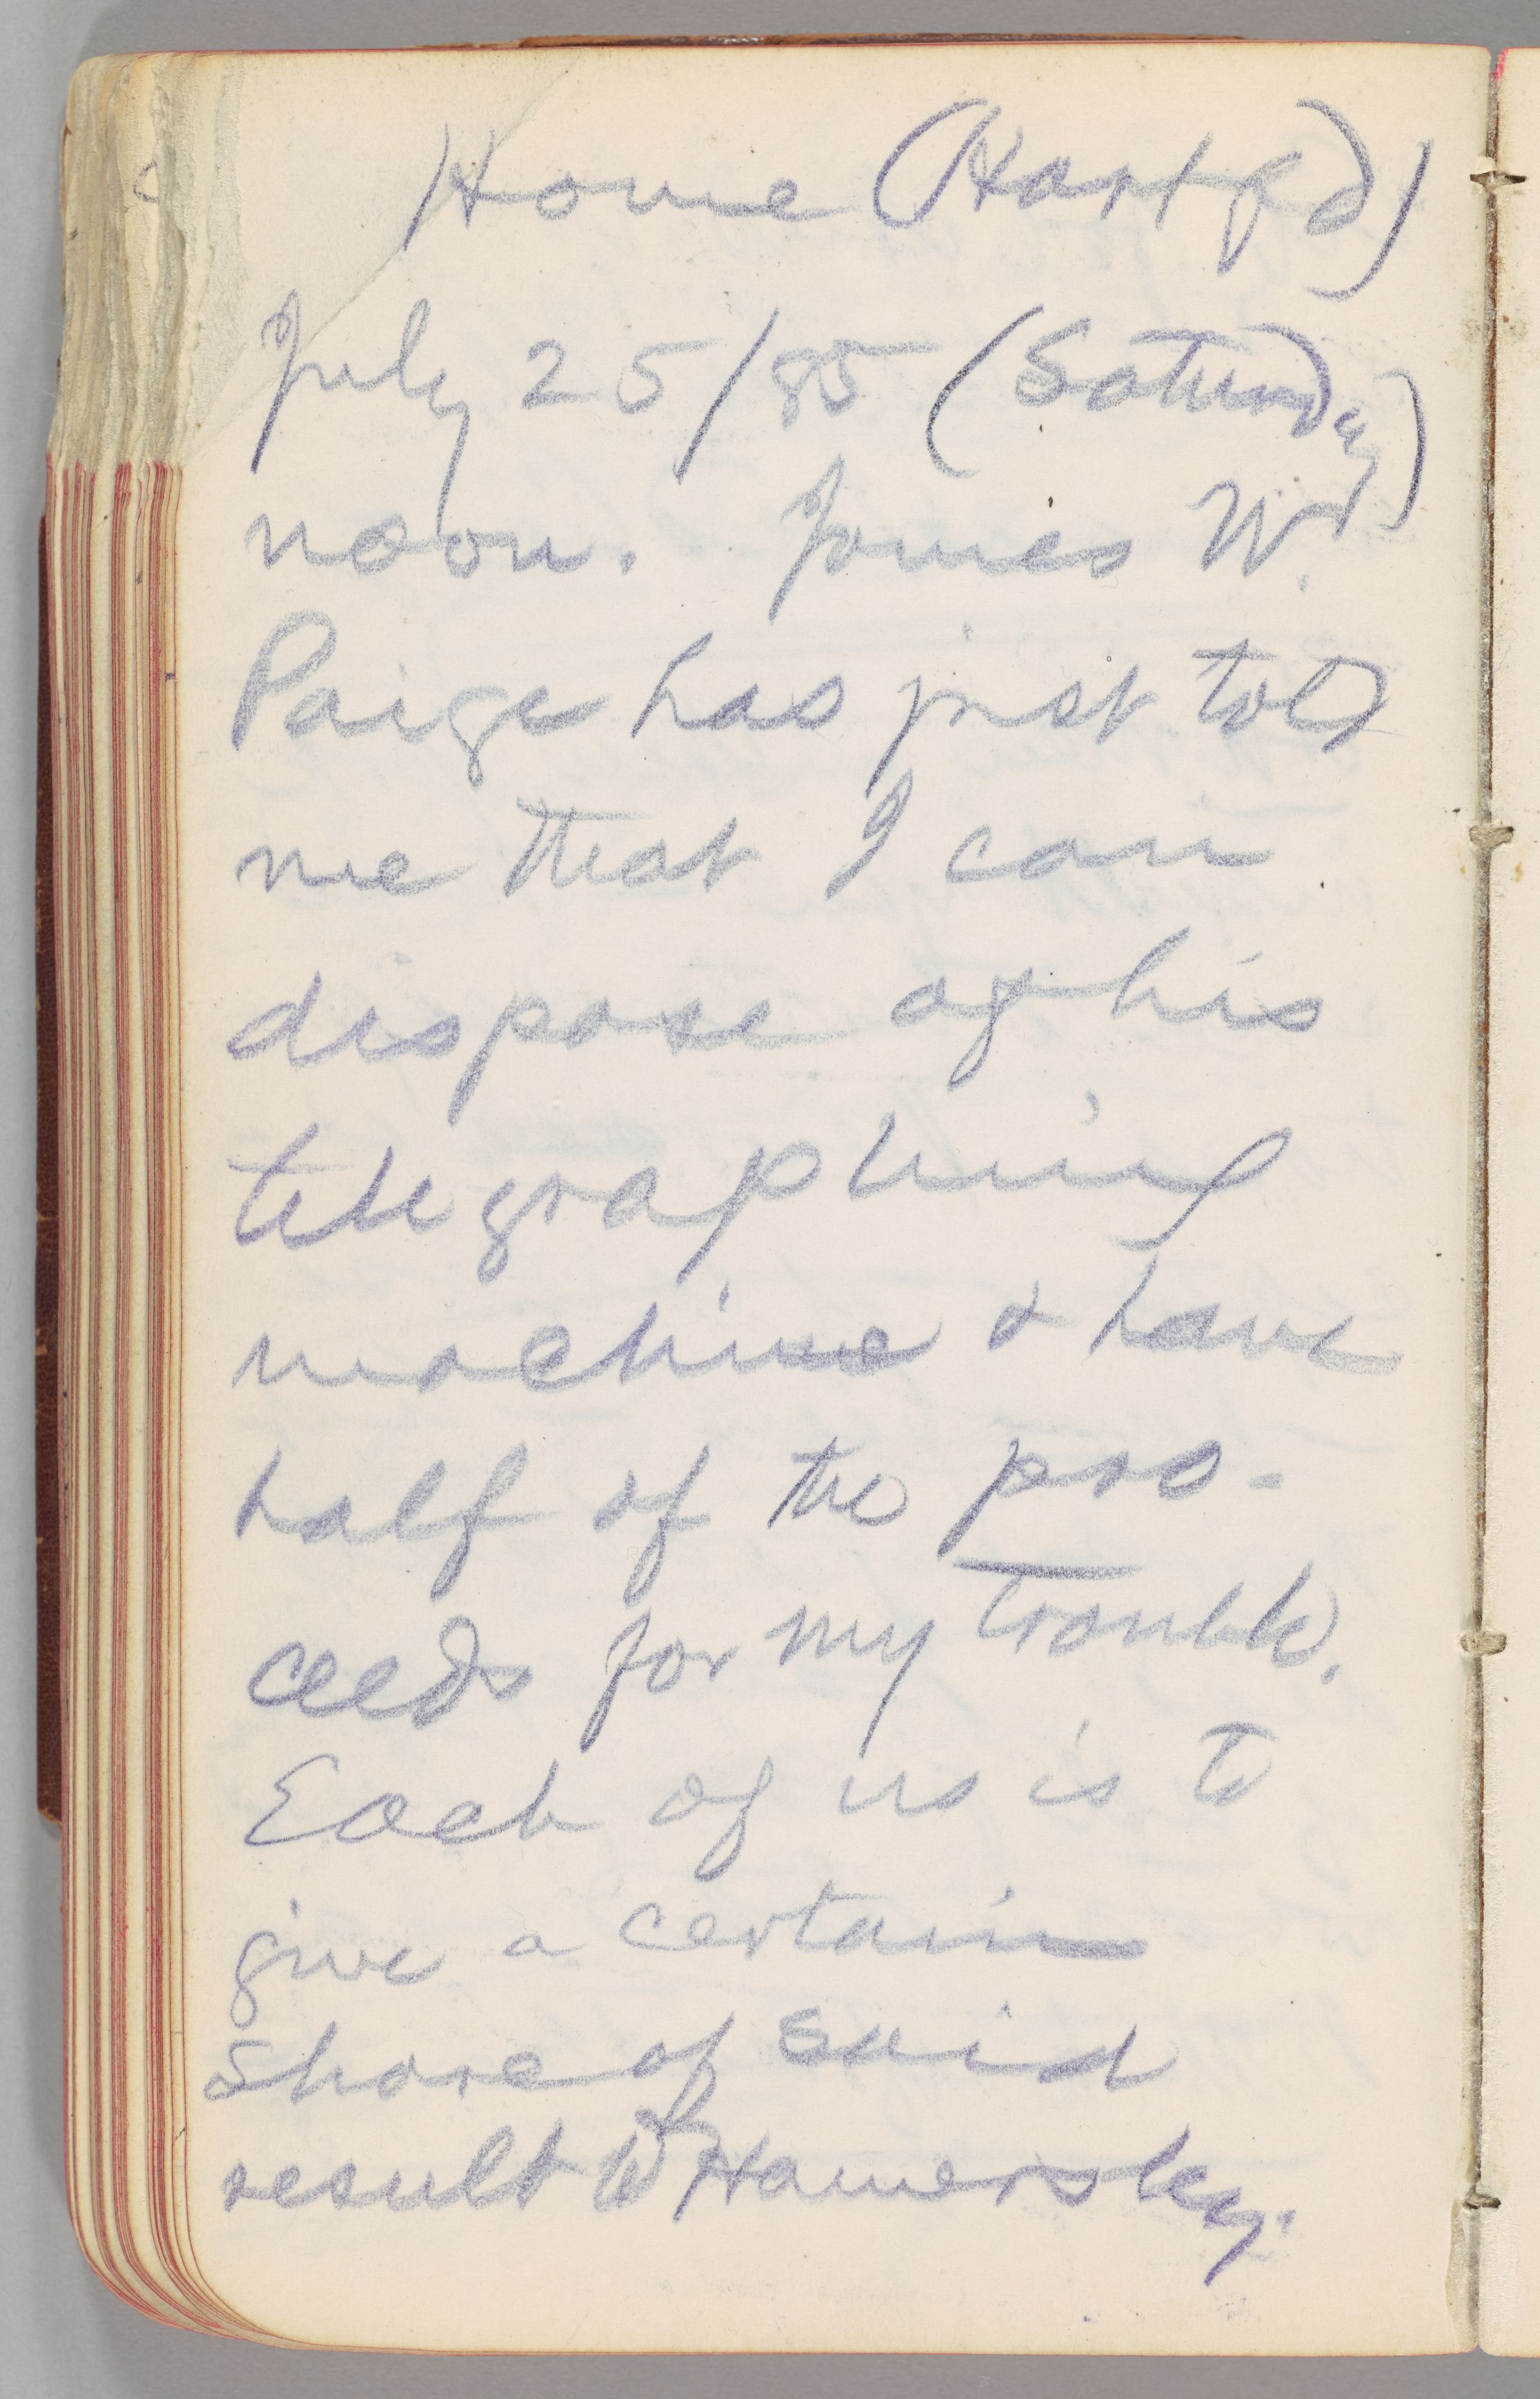 Home (Hartfd)
July 25/85 (Saturday)
noon. James W.
Paige has just told
me that I can
dispose of his
telegraphing
machine & have
half of the pro-
ceeds for my trouble.
Each of us is to
give a certain
share of said
result to Hamersley.